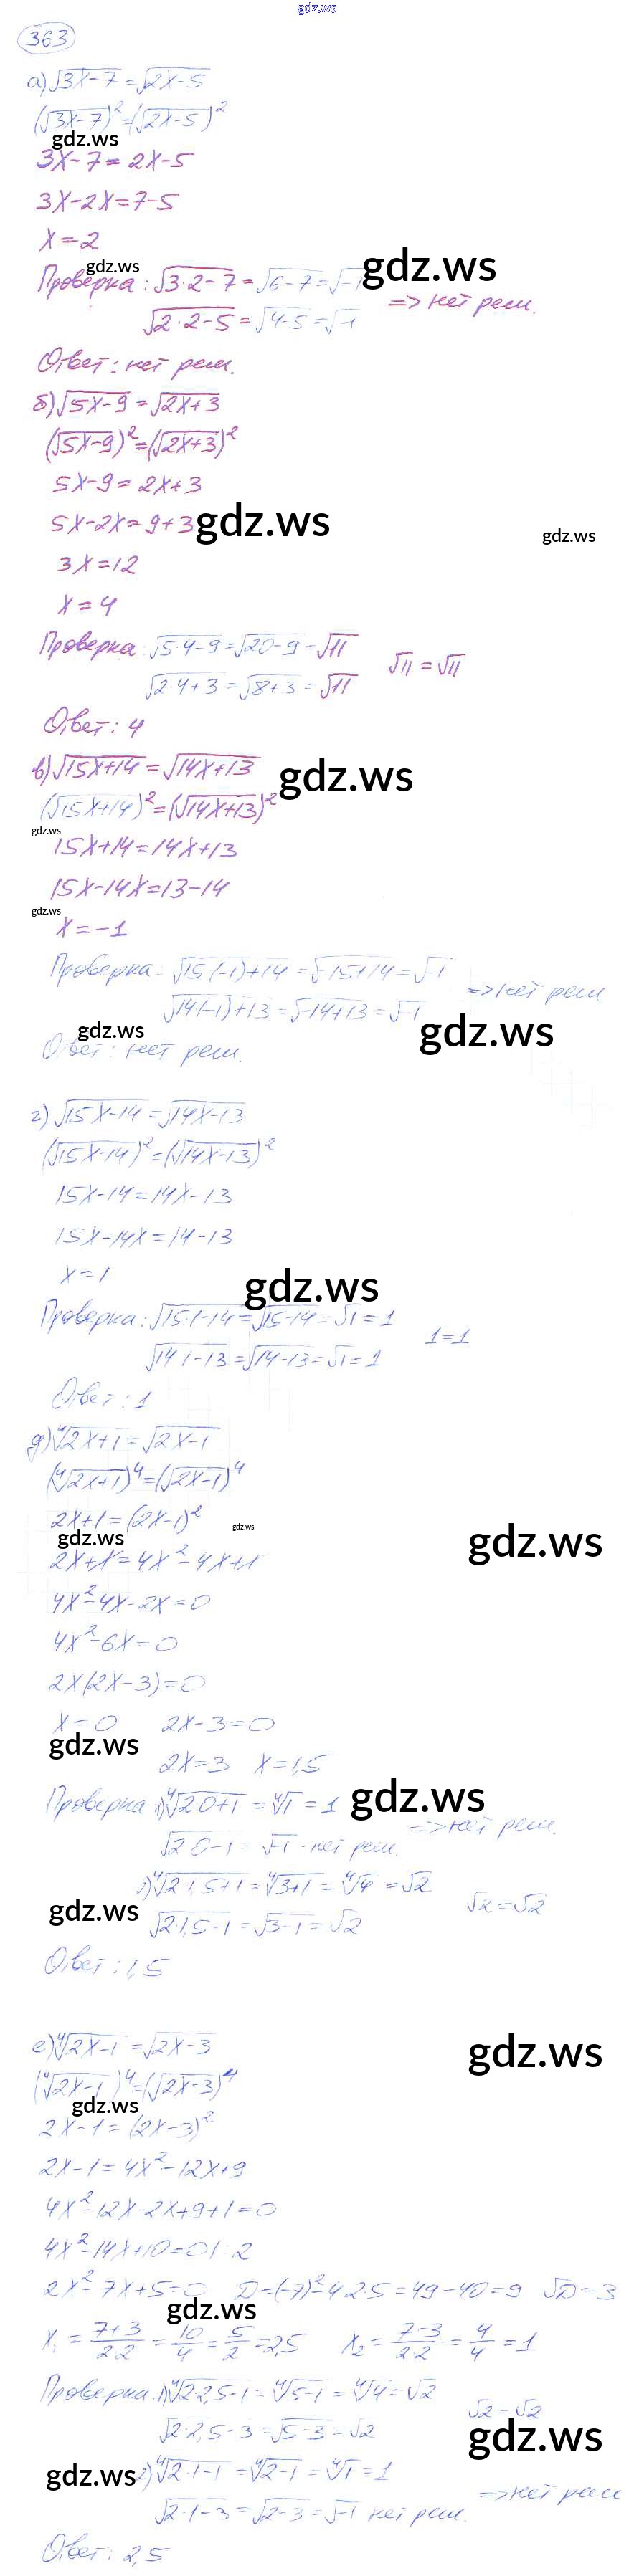 gdz.ws
363
а) √3x-7 = √2x-5
(√3x-7)² = (√2x-5)²
gdz.ws
3x-7 = 2x-5
3x-2x = 7-5
x = 2
gdz.ws
gdz.ws
Проверка: √3·2-7 = √6-7 = √-1
√2·2-5 = √4-5 = √-1
=> нет реш.
Ответ: нет реш.
б) √5x-9 = √2x+3
(√5x-9)² = (√2x+3)²
5x-9 = 2x+3
5x-2x = 9+3
gdz.ws
gdz.ws
3x = 12
x = 4
Проверка √5·4-9 = √20-9 = √11
√2·4+3 = √8+3 = √11
√11 = √11
Ответ: 4
в) √15x+14 = √14x+13
gdz.ws
(√15x+14)² = (√14x+13)²
gdz.ws
15x+14 = 14x+13
15x-14x = 13-14
gdz.ws
x = -1
Проверка: √15(-1)+14 = √-15+14 = √-1
√14(-1)+13 = √-14+13 = √-1
=> нет реш.
gdz.ws
gdz.ws
Ответ: нет реш.
г) √15x-14 = √14x-13
(√15x-14)² = (√14x-13)²
15x-14 = 14x-13
15x-14x = 14-13
x = 1
gdz.ws
Проверка: √15·1-14 = √15-14 = √1 = 1
√14·1-13 = √14-13 = √1 = 1
1 = 1
Ответ: 1
д) ⁴√2x+1 = √2x-1
(⁴√2x+1)⁴ = (√2x-1)⁴
2x+1 = (2x-1)²
gdz.ws
gdz.ws
gdz.ws
2x+1 = 4x²-4x+1
4x²-4x-2x = 0
4x²-6x = 0
2x(2x-3) = 0
x = 0 2x-3 = 0
gdz.ws
2x = 3 x = 1,5
Проверка: 1) ⁴√2·0+1 = ⁴√1 = 1
gdz.ws
√2·0-1 = √-1 - нет реш.
=> нет реш.
2) ⁴√2·1,5+1 = ⁴√3+1 = ⁴√4 = √2
gdz.ws
√2·1,5-1 = √3-1 = √2
√2 = √2
Ответ: 1,5
е) ⁴√2x-1 = √2x-3
gdz.ws
(⁴√2x-1)⁴ = (√2x-3)⁴
gdz.ws
2x-1 = (2x-3)²
2x-1 = 4x²-12x+9
4x²-12x-2x+9+1 = 0
4x²-14x+10 = 0 |:2
2x²-7x+5 = 0 D = (-7)²-4·2·5 = 49-40 = 9 √D = 3
gdz.ws
x₁ = 7+3/2·2 = 10/4 = 5/2 = 2,5 x₂ = 7-3/2·2 = 4/4 = 1
Проверка: 1) ⁴√2·2,5-1 = ⁴√5-1 = ⁴√4 = √2
√2·2,5-3 = √5-3 = √2
√2 = √2
gdz.ws
gdz.ws
2) ⁴√2·1-1 = ⁴√2-1 = ⁴√1 = 1
√2·1-3 = √2-3 = √-1 нет реш.
=> нет реш
Ответ: 2,5